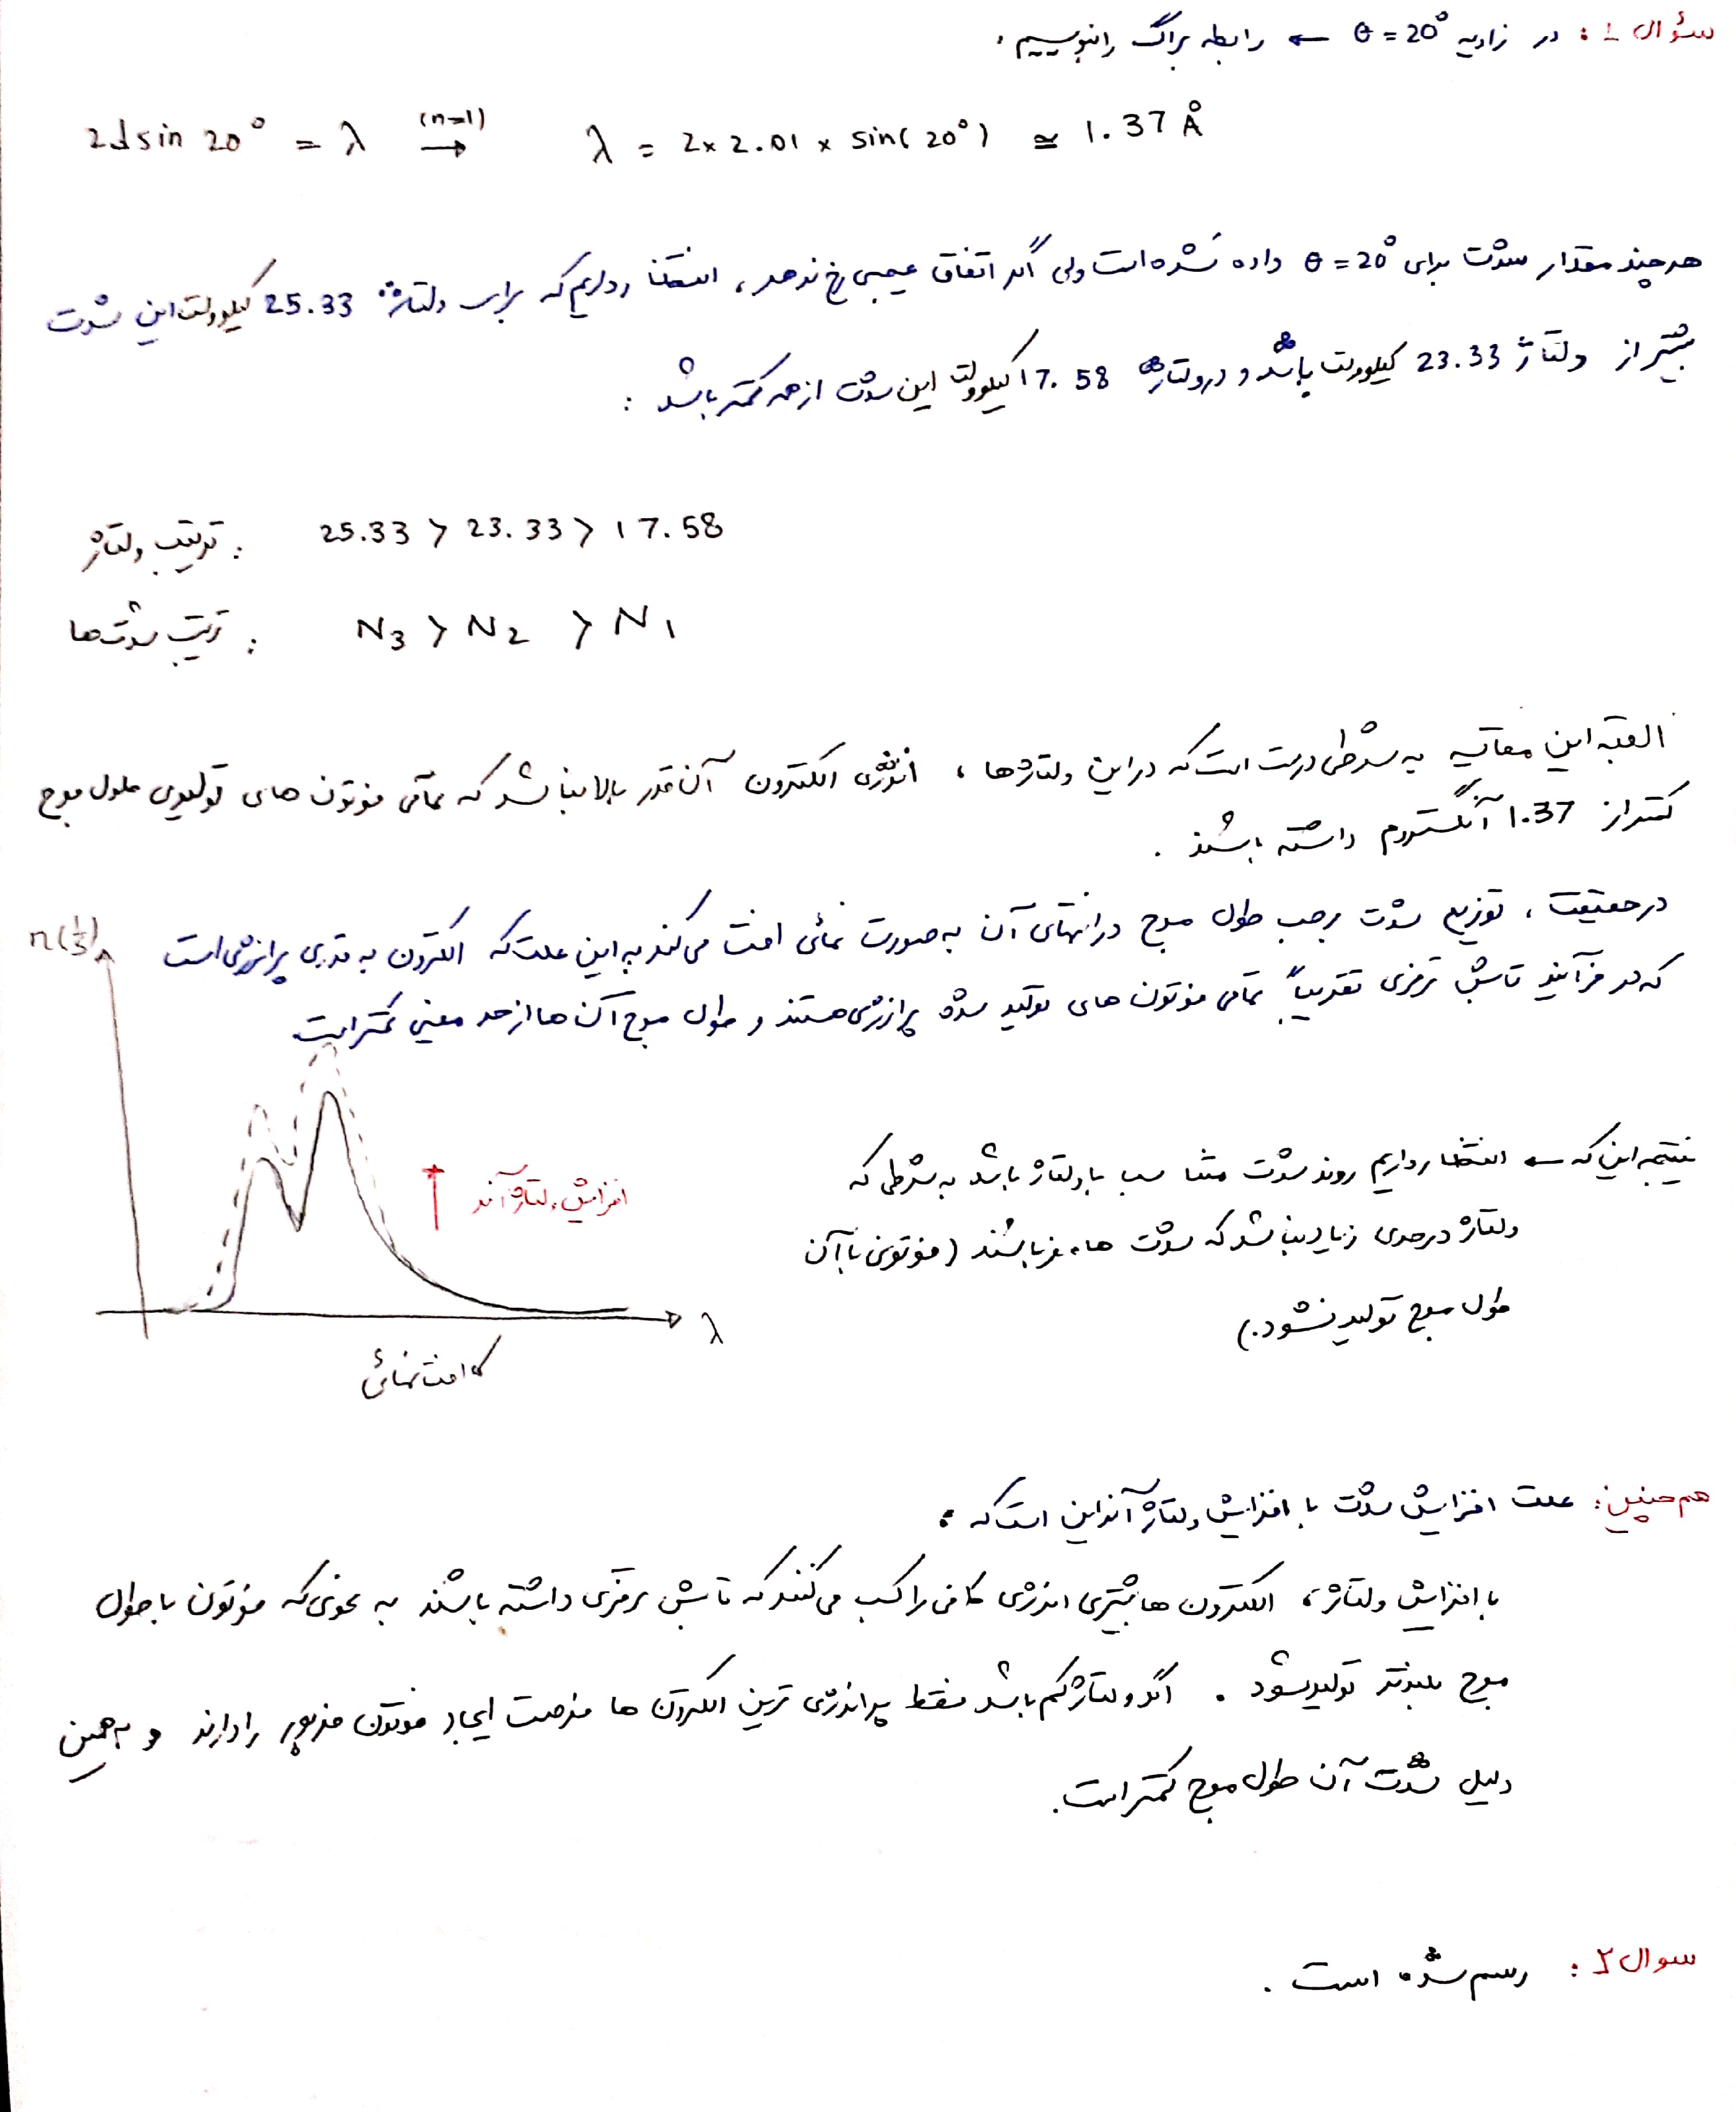 سؤال 1 : در زاویه θ = 20° ← رابطه براگ را بنویسیم.
2d sin 20° = λ (n=1) → λ = 2 × 2.01 × sin(20°) ≅ 1.37 Å
هر چند مقدار شدت برای θ = 20° داده نشده است ولی اگر اتفاق عجیبی رخ ندهد ، انتظار داریم که برای ولتاژ 25.33 کیلوولت این شدت
بیشتر از ولتاژ 23.33 کیلوولت باشد و در ولتاژ 17.58 کیلوولت این شدت از همه کمتر باشد :
ترتیب ولتاژ : 25.33 > 23.33 > 17.58
ترتیب شدت ها : N3 > N2 > N1
البته این مقایسه به شرطی درست است که در این ولتاژها ، انرژی الکترون آن قدر بالا نباشد که تمامی فوتون های تولیدی طول موج
کمتر از 1.37 آنگستروم داشته باشند .
در حقیقت ، توزیع شدت برحسب طول موج در انتهای آن به صورت نمائی افت می کند به این علت که الکترون به قدری پرانرژی است
که در فرآیند تابش ترمزی تقریباً تمامی فوتون های تولید شده پرانرژی هستند و طول موج آن ها از حد معینی کمتر است
n(1/s)
نتیجه این که ← انتظار داریم روند شدت متناسب با ولتاژ باشد به شرطی که
افزایش ولتاژ آند
ولتاژ در حدی زیاد نباشد که شدت ها صفر باشند (فوتونی با آن
طول موج تولید نشود.)
λ
افت نمائی
هم چنین : علت افزایش شدت با افزایش ولتاژ آند این است که :
با افزایش ولتاژ ، الکترون های بیشتری انرژی کافی را کسب می کنند که تابش ترمزی داشته باشند به نحوی که فوتون با طول
موج بلندتر تولید شود . اگر ولتاژ کم باشد فقط پرانرژی ترین الکترون ها فرصت ایجاد فوتون مزبور را دارند و به همین
دلیل شدت آن طول موج کمتر است.
سوال 2 : رسم شده است .